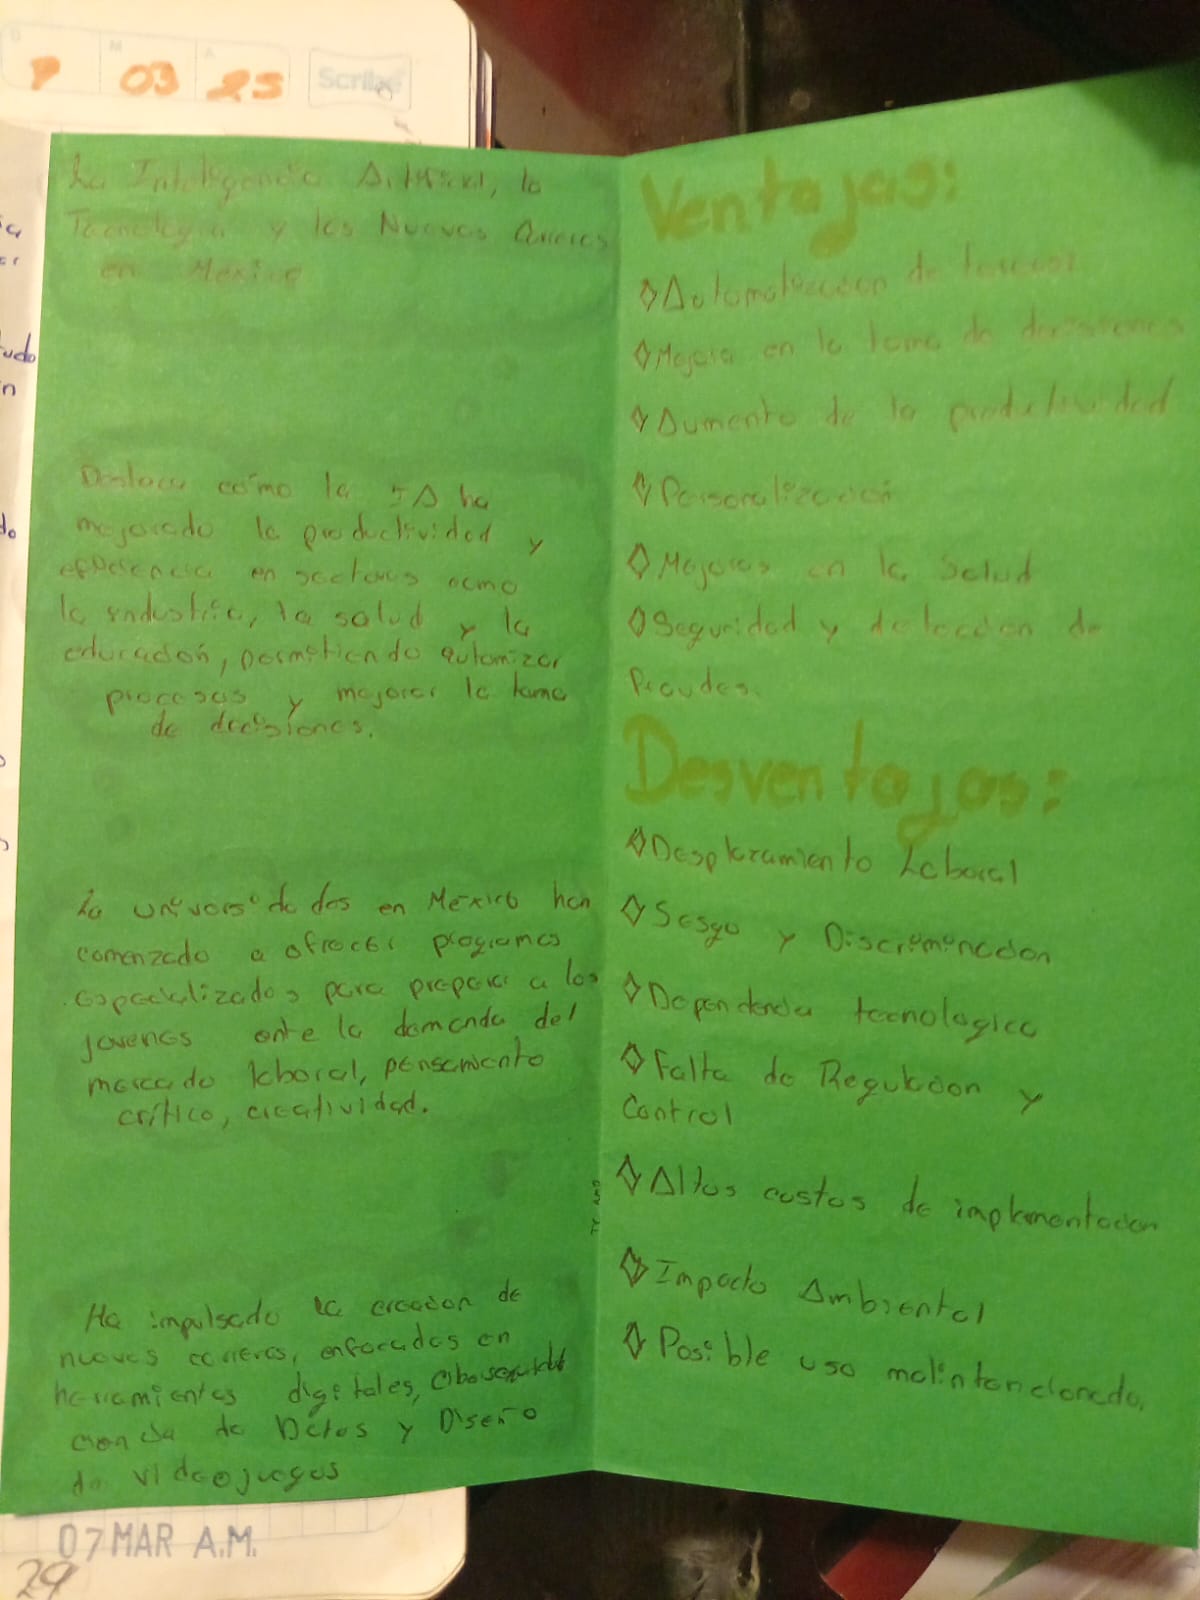 7 03 25
Scribe
La Inteligencia Artificial, la
Tecnología y las Nuevas Carreras
en México
Destaca cómo la IA ha
mejorado la productividad y
eficiencia en sectores como
la industria, la salud y la
educación, permitiendo automizar
procesos y mejorar la toma
de decisiones.
La universidades en México han
comenzado a ofrecer programas
especializados para preparar a los
jovenes ante la demanda del
mercado laboral, pensamiento
crítico, creatividad.
Ha impulsado la creacion de
nuevas carreras, enfocadas en
herramientas digitales,
ciencia de Datos y Diseño
de videojuegos
Ventajas:
Automatizacion de tareas
Mejora en la toma de decisiones
Aumento de la productividad
Personalización
Mejoras en la Salud
Seguridad y deteccion de
Fraudes.
Desventajas:
Desplazamiento Laboral
Sesgo y Discriminacion
Dependencia tecnologica
Falta de Regulacion y
Control
Altos costos de implementacion
Impacto Ambiental
Posible uso malintencionado.
TE AMO
07 MAR A.M.
29